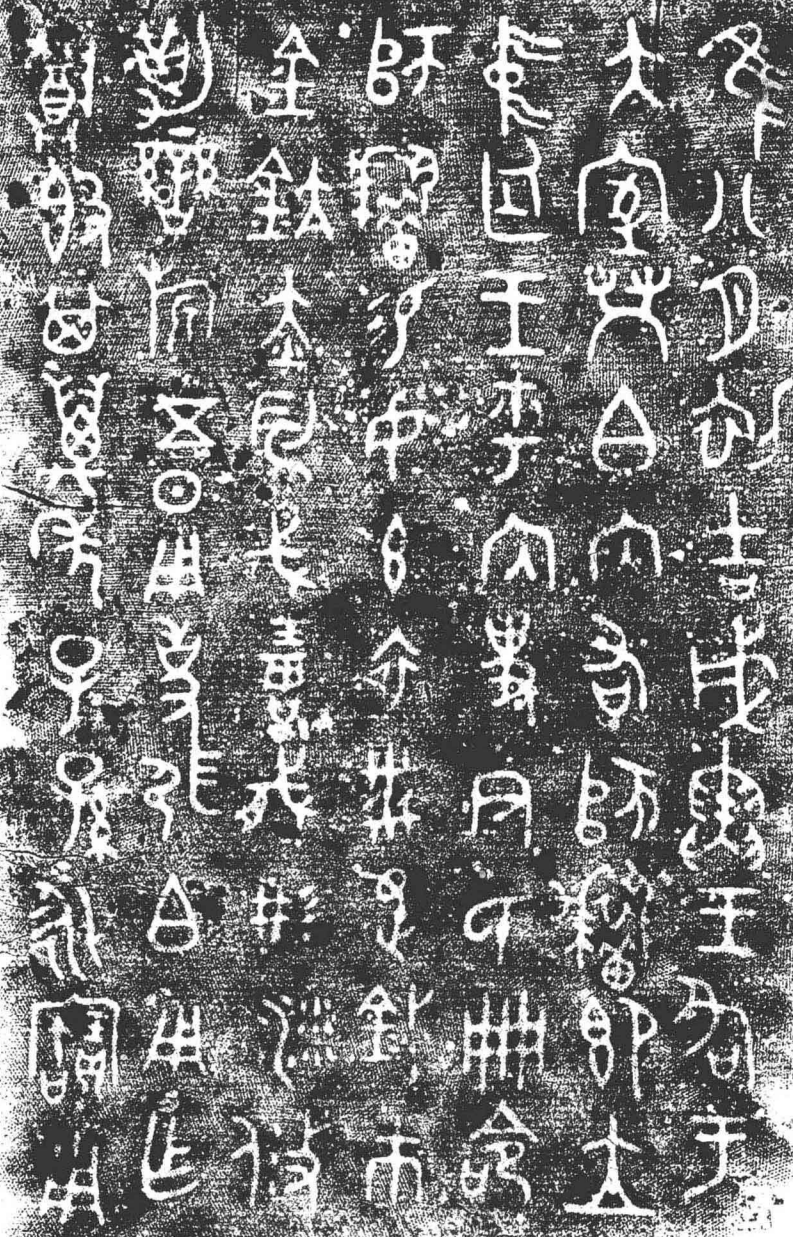 隹八月初吉戊寅王各于
大室榮白內右師耤即立
中廷王乎內史尹氏册命
師耤易女玄衣黹屯巿
金鈧赤舄戈琱㦸彤沙攸
勒鑾旂五日用事弭白用乍
尊𣪘其萬年子子孫孫永寶用